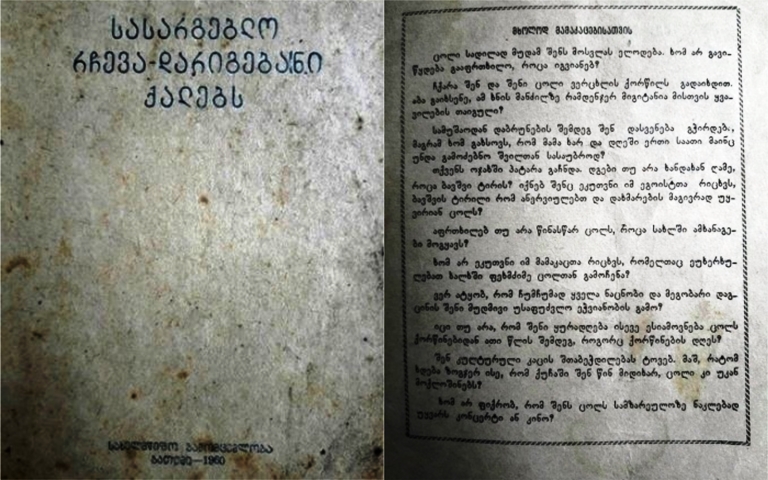 სასარგებლო
რჩევა-დარიგებანი
ქალებს
სახელმწიფო გამომცემლობა
ბათუმი—1960
მხოლოდ მამაკაცებისათვის
ცოლი სადილად მუდამ შენს მოსვლას ელოდება. ხომ არ გავი-
წყდება გააფრთხილო, როცა იგვიანებ?
ჩქარა შენ და შენი ცოლი ვერცხლის ქორწილს გადაიხდით.
აბა გაიხსენე, ამ ხნის მანძილზე რამდენჯერ მიგიტანია მისთვის ყვა-
ვილების თაიგული?
სამუშაოდან დაბრუნების შემდეგ შენ დასვენება გჭირდება,
მაგრამ ხომ გახსოვს, რომ მამა ხარ და დღეში ერთი საათი მაინც
უნდა გამოძებნო შვილთან სასაუბროდ?
თქვენს ოჯახში პატარა გაჩნდა. დგები თუ არა ხანდახან ღამე,
როცა ბავშვი ტირის? იქნებ შენც ეკუთვნი იმ ეგოისტთა რიცხვს,
ბავშვის ტირილი რომ ანერვიულებთ და დახმარების მაგივრად უყ-
ვირიან ცოლს?
აფრთხილებ თუ არა წინასწარ ცოლს, როცა სახლში ამხანაგე-
ბი მოგყავს?
ხომ არ ეკუთვნი იმ მამაკაცთა რიცხვს, რომელთაც ეუხერხუ-
ლებათ ხალხში ფეხმძიმე ცოლთან გამოჩენა?
ვერ ატყობ, რომ ჩუმჩუმად ყველა ნაცნობი და მეგობარი დაგ-
ცინის შენი მუდმივი უსაფუძვლო ეჭვიანობის გამო?
იცი თუ არა, რომ შენი ყურადღება ისევე ესიამოვნება ცოლს
ქორწინებიდან ათი წლის შემდეგ, როგორც ქორწინების დღეს?
შენ კულტურული კაცის შთაბეჭდილებას ტოვებ. მაშ, რატომ
ხდება ზოგჯერ ისე, რომ ქუჩაში შენ წინ მიდიხარ, ცოლი კი უკან
მოქლოშინებს?
ხომ არ ფიქრობ, რომ შენს ცოლს სამზარეულოზე ნაკლებად
უყვარს კონცერტი ან კინო?